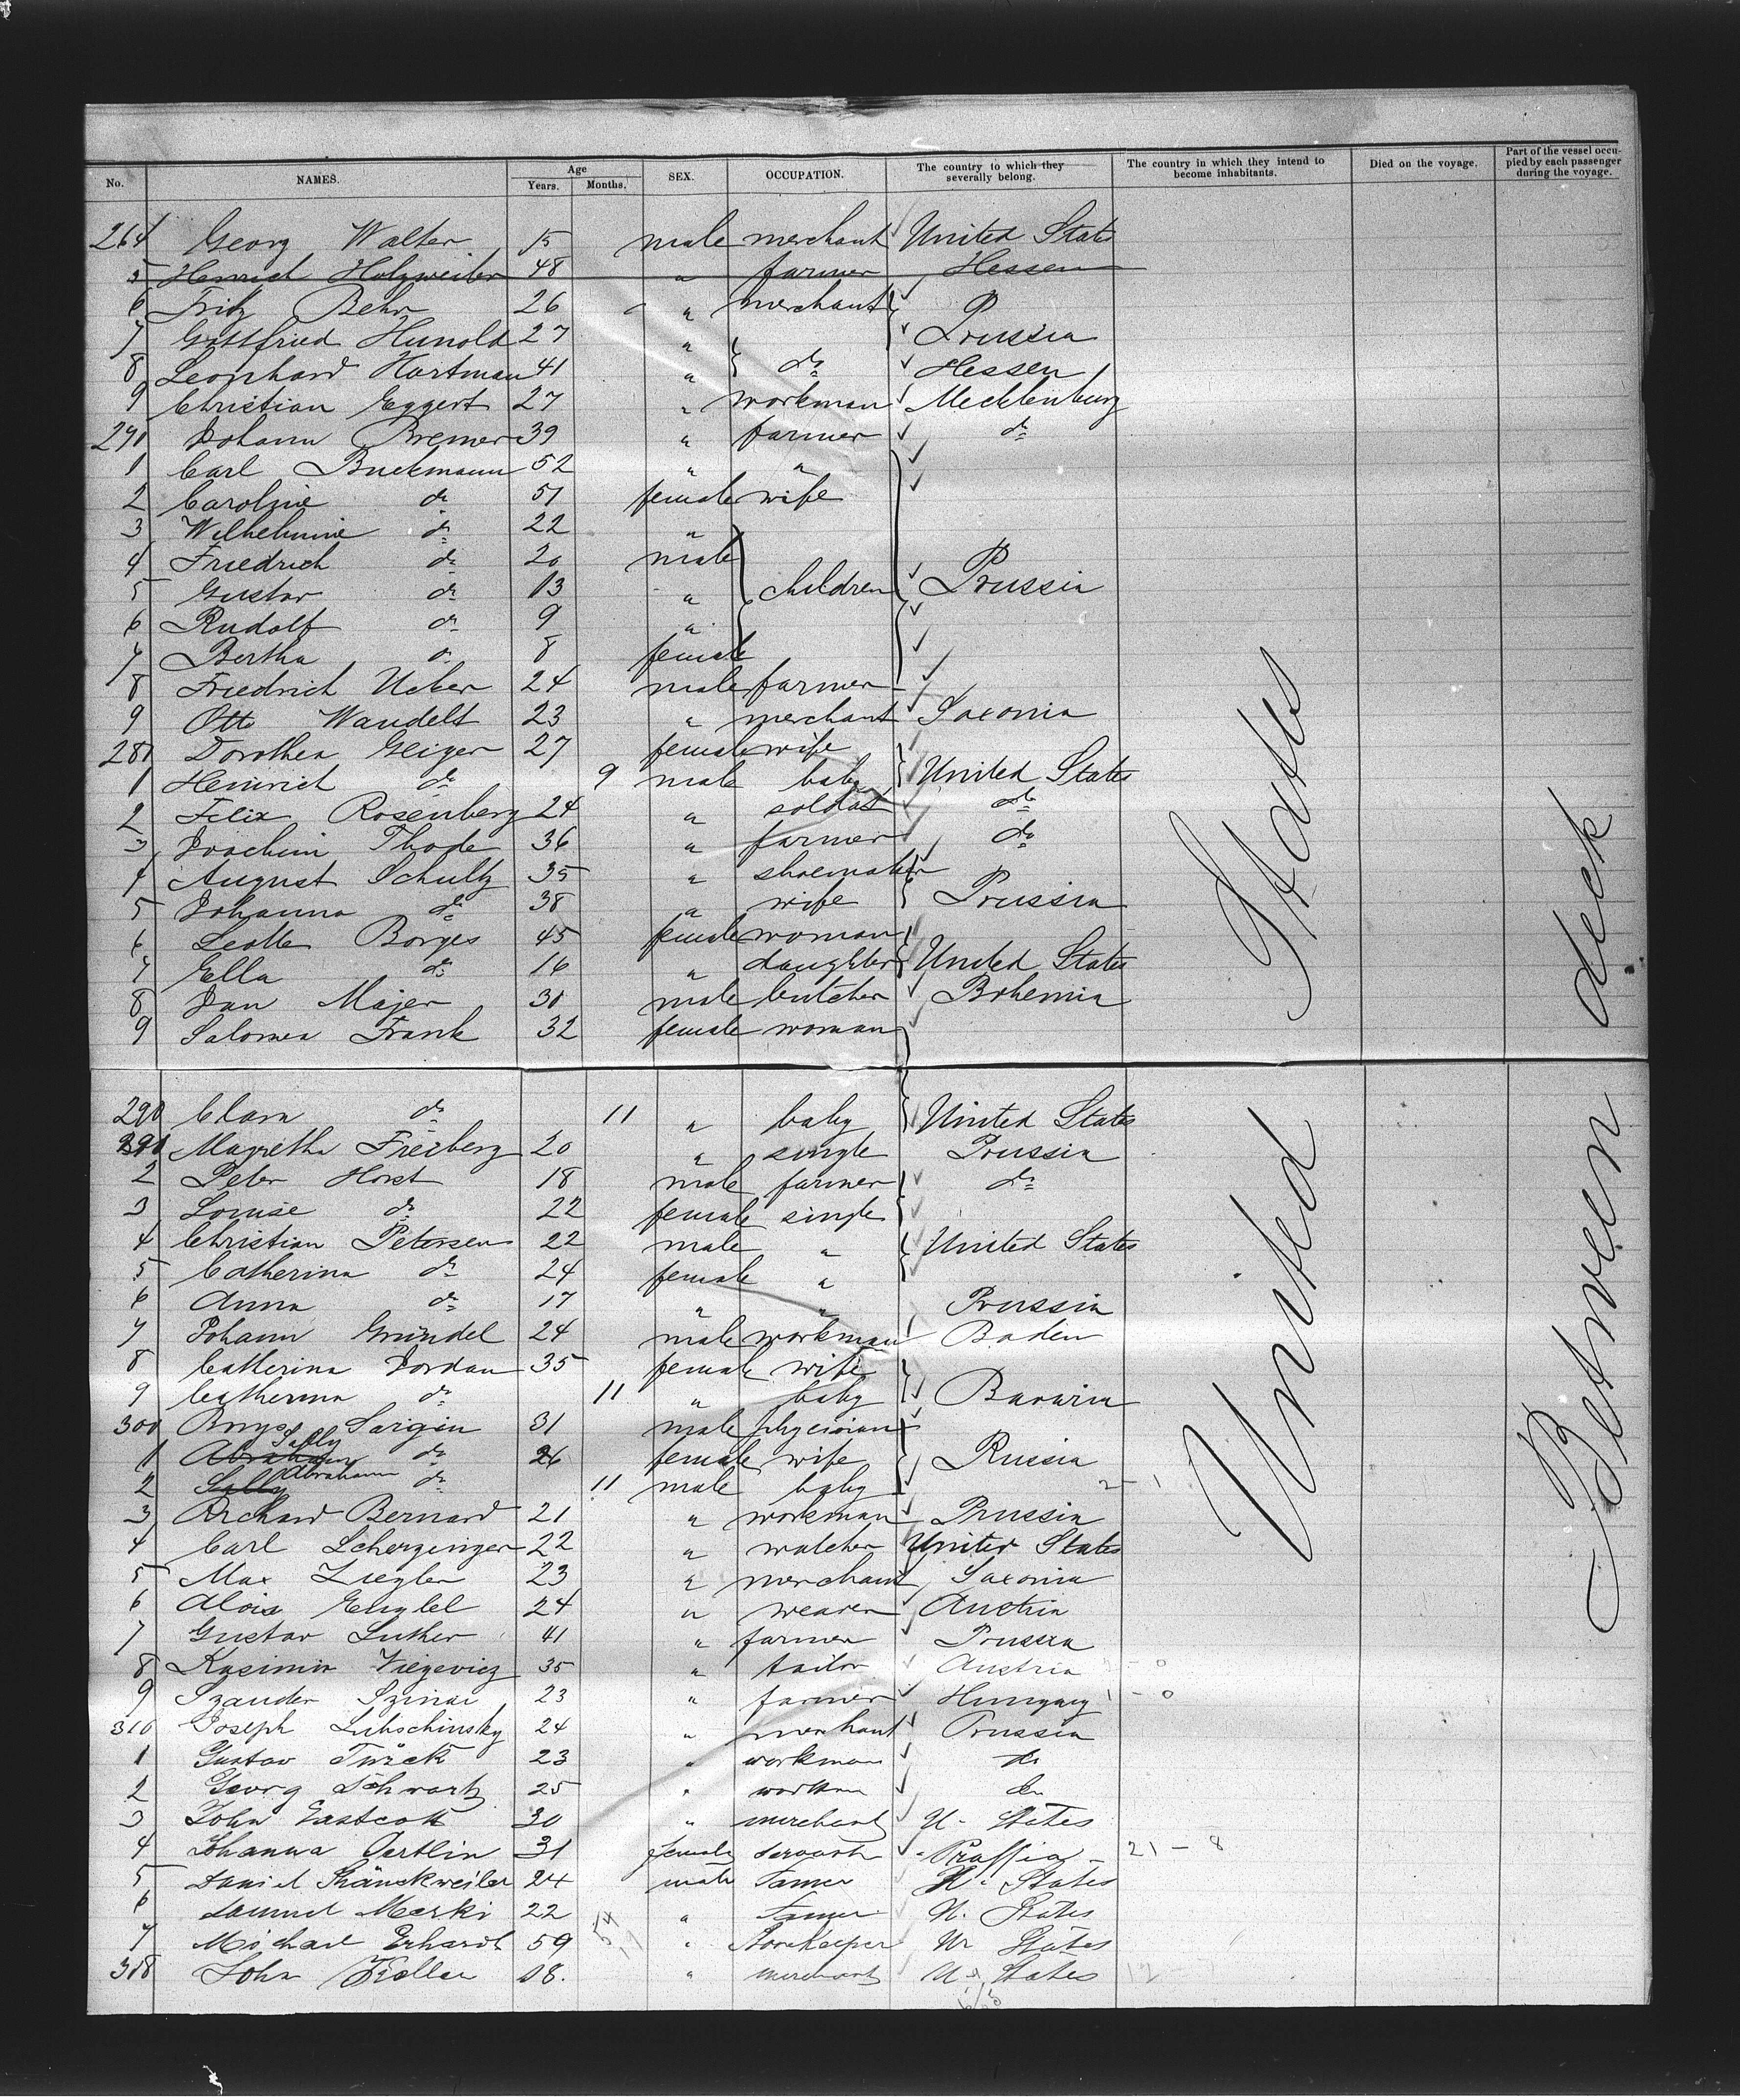 No. NAMES. Age Years. Months. SEX. OCCUPATION. The country to which they severally belong. The country in which they intend to become inhabitants. Died on the voyage. Part of the vessel occupied by each passenger during the voyage.
264 Georg Walter 15 male merchant United States
5 Heinrich Holzweiler 48 " farmer Hessen
6 Fritz Behr 26 " merchant
7 Gottfried Hunold 27 " Prussia
8 Leonhard Hartman 41 " do Hessen
9 Christian Eggert 27 " workman Mecklenburg
270 Johann Bremer 39 " farmer do
1 Carl Buckmann 52 " "
2 Caroline do 51 female wife
3 Wilhelmine do 22 "
4 Friedrich do 20 male
5 Gustav do 13 " children Prussia
6 Rudolf do 9 "
7 Bertha do 8 female
8 Friedrich Ueker 24 male farmer
9 Otto Wandelt 23 " merchant Saxonia
280 Dorothea Geiger 27 female wife
1 Heinrich do 9 male baby United States
2 Felix Rosenberg 24 " soldat do
3 Joachim Thode 36 " farmer do
4 August Schultz 35 " shoemaker
5 Johanna do 38 " wife Prussia
6 Borges 45 female woman
7 Ella do 16 " daughter United States
8 Jan Majer 30 male butcher Bohemia
9 Salomea Frank 32 female woman
290 Clara do 11 " baby United States
291 Magretha Freiberg 20 " single Prussia
2 Peter Horst 18 male farmer do
3 Louise do 22 female single
4 Christian Petersen 22 male " United States
5 Catherina do 24 female "
6 Anna do 17 " " Prussia
7 Johann Gründel 24 male workman Baden
8 Catherina Jordan 35 female wife
9 Catherina do 11 " baby Bavaria
300 Sargin 31 male physician
1 Abraham Sally do 26 female wife Russia
2 Sally Abraham do 11 male baby
3 Richard Bernard 21 " workman Prussia
4 Carl Scherzinger 22 " watcher United States
5 Max Ziegler 23 " merchant Saxonia
6 Alois 24 " weaver Austria
7 Gustav Luther 41 " farmer Prussia
8 Kasimir 35 " tailor Austria
9 Szander Szinai 23 " farmer Hungary
310 Joseph Lubschinsky 24 " merchant Prussia
1 Gustav Türck 23 " workman do
2 Georg Schwartz 25 " workm do
3 John Eastcott 30 " merchant U. States
4 Johanna Oertlin 31 female servant Prussia 21 - 8
5 Daniel Shänckweiler 24 male Farmer U. States
6 Samuel Merki 22 " Farmer U. States
7 Michael Erhardt 59 " Storekeeper U. States
318 John Keller 18. " merchant U. States
United States
Between deck